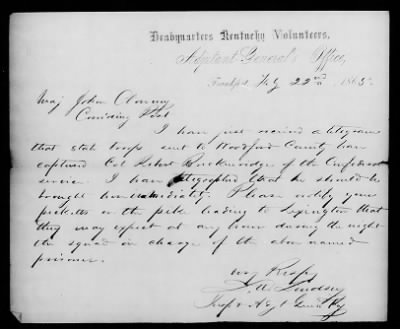 Headquarters Kentucky Volunteers,
Adjutant General's Office,
Frankfort, Feby 22nd 1865.
Maj John
Comdg Post
I have just received a telegram
that state troops sent to Woodford County have
captured Col Robert Breckenridge of the Confederate
service. I have telegraphed that he should be
brought here immediately. Please notify your
pickets on the pike leading to Lexington that
they may expect at any hour during the night
the squad in charge of the above named
prisoner.
Very Respy
Lindsey
Insp & Adjt Genl Ky